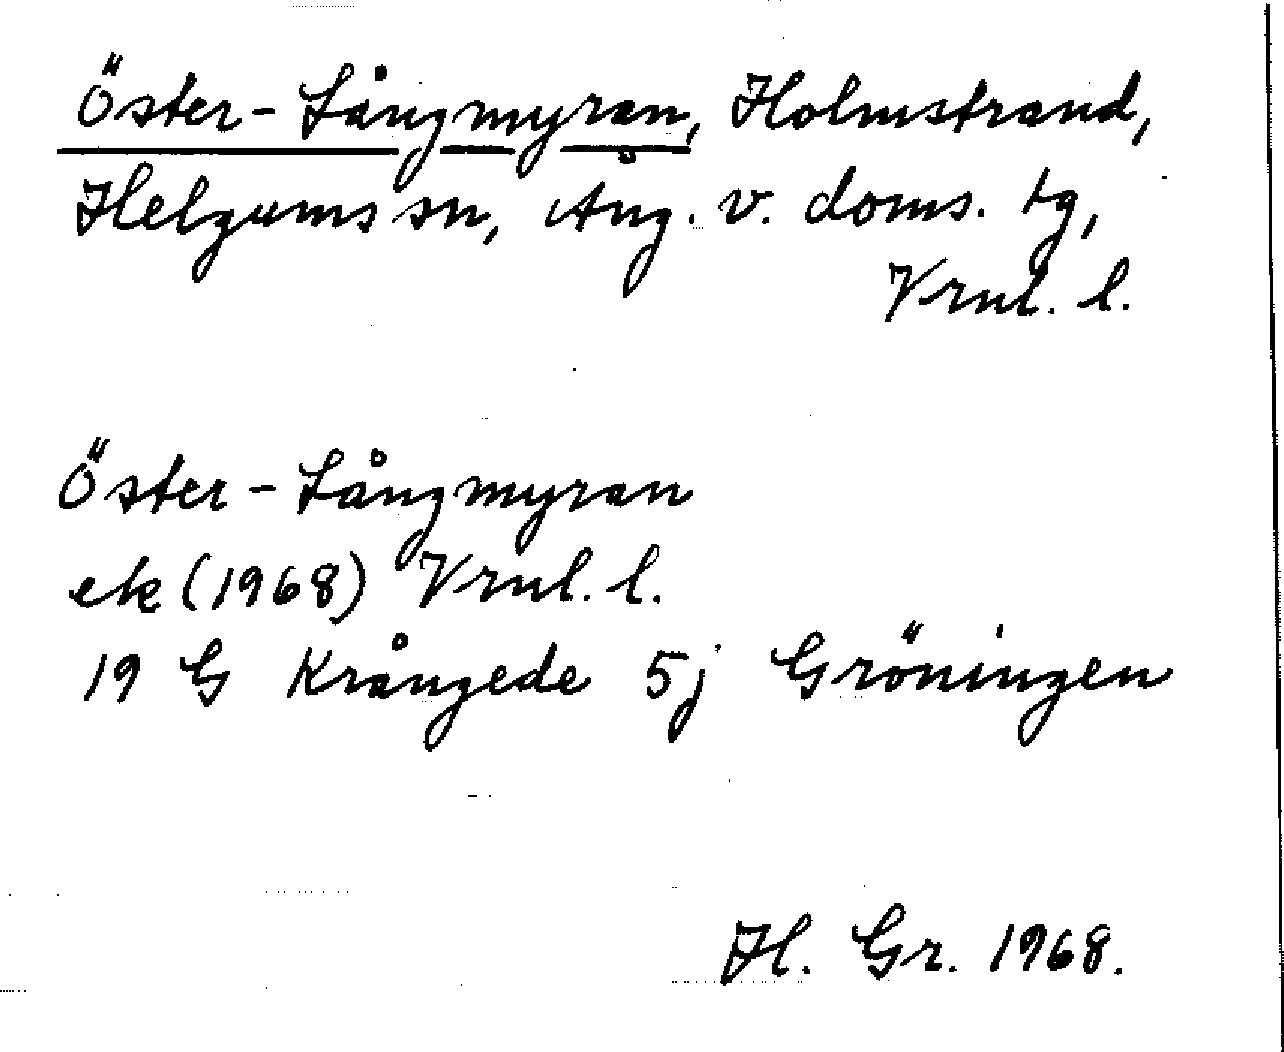 Öster-Långmyran, Holmstrand,
Helgums sn, Ång. v. doms. tg,
Vrnl. l.
Öster-Långmyran
ek (1968) Vrnl. l.
19 G Krångede 5j Gröningen
H. Gr. 1968.